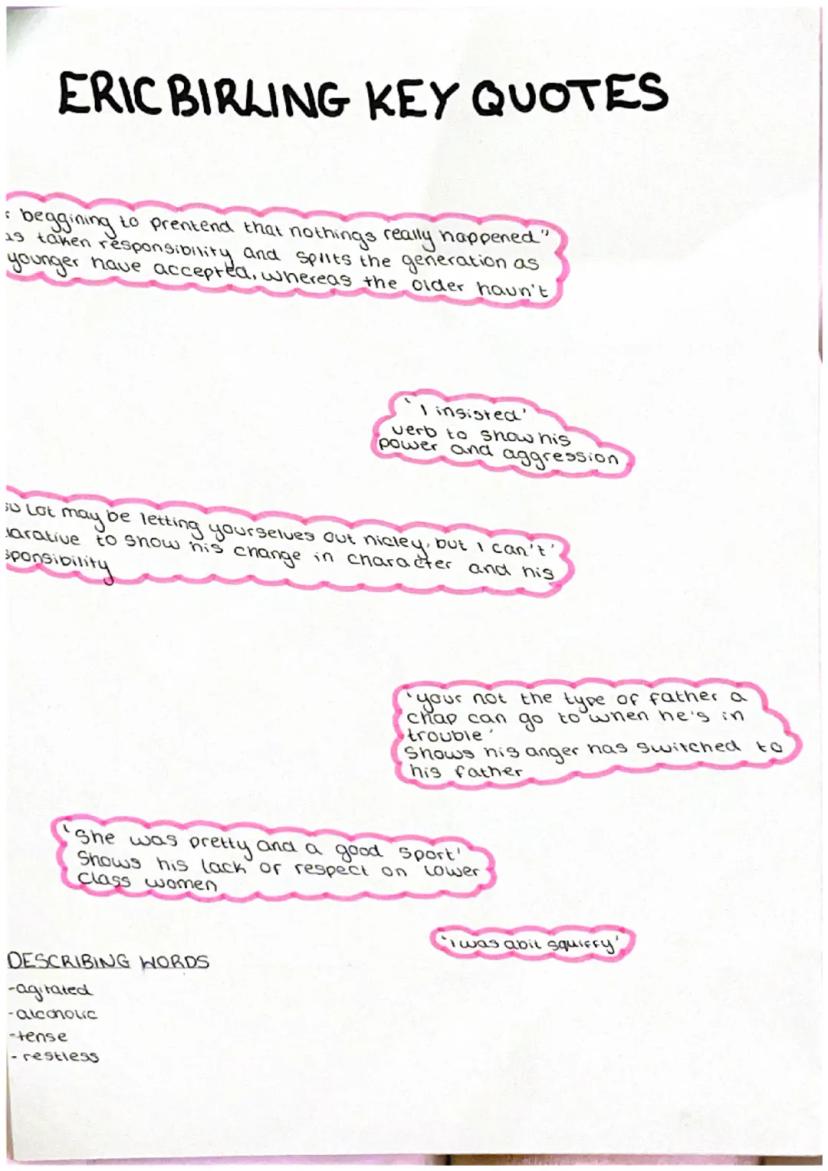 ERIC BIRLING KEY QUOTES
beggining to prentend that nothings really happened"
as taken responsibility and splits the generation as
younger have accepted, whereas the older havn't
'I insisted'
verb to show his
power and aggression
Lot may be letting yourselves out nicley, but I can't'
arative to show his change in character and his
sponsibility
'your not the type of father a
chap can go to when he's in
trouble'
shows his anger has switched to
his father
'She was pretty and a good sport'
Shows his lack of respect on lower
class women
'I was abit squiffy'
DESCRIBING WORDS
-agitated
-alcoholic
-tense
- restless